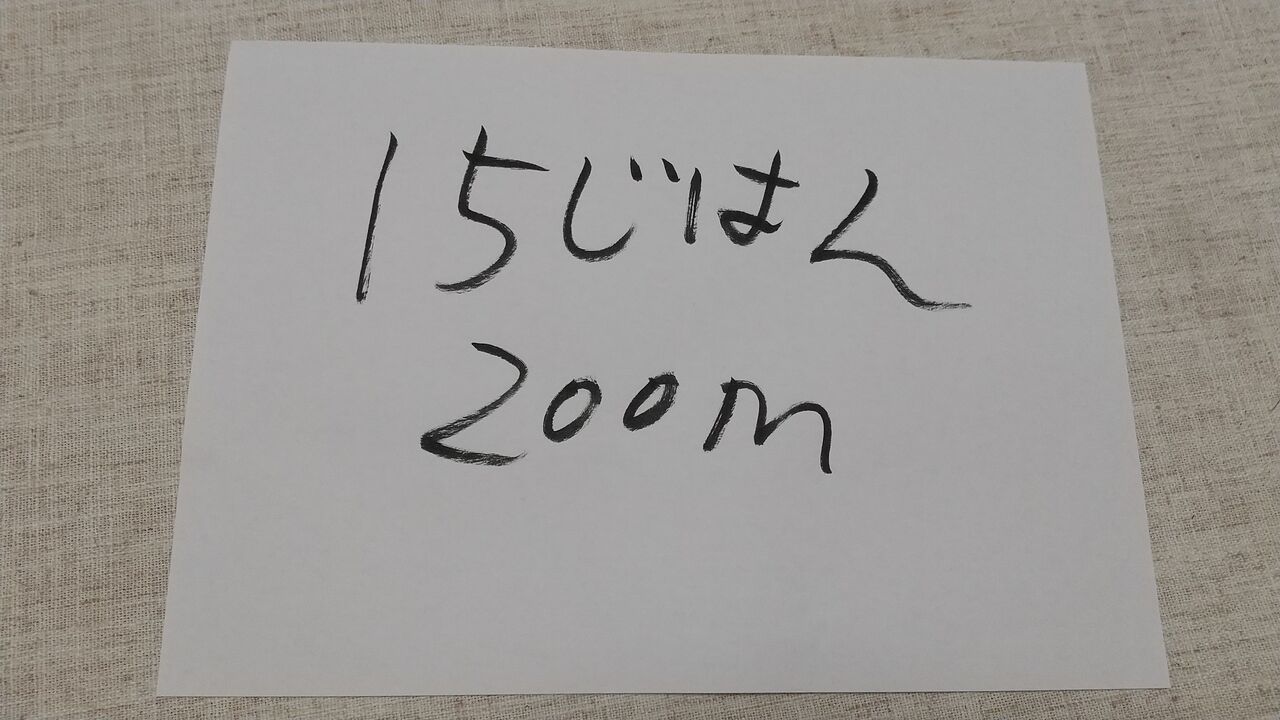 15じはん
200m